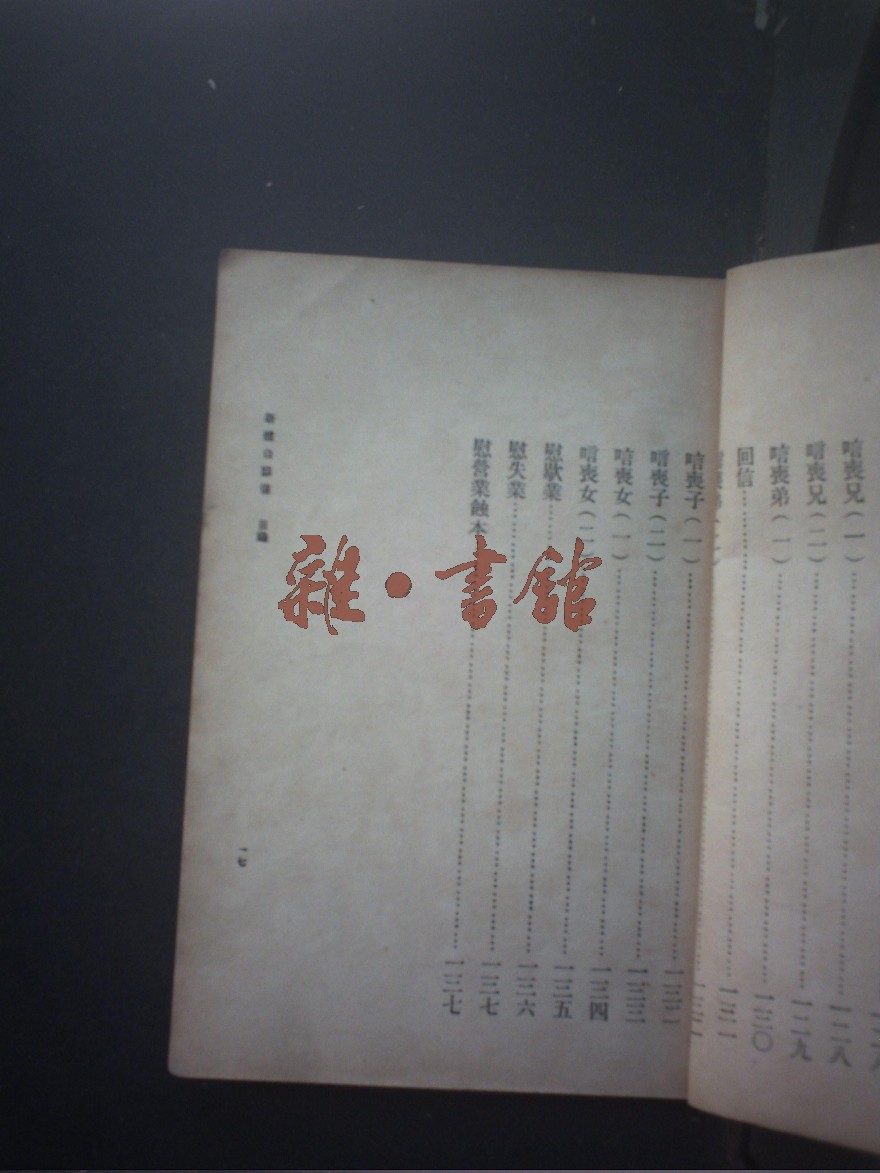 唁喪兄(一)……一二八
唁喪兄(二)……一二九
唁喪弟(一)……一三〇
回信……一三一
唁喪子(一)……一三二
唁喪子(二)……一三三
唁喪女(一)……一三四
唁喪女(二)……一三五
慰歇業……一三六
慰失業……一三七
慰營業蝕本……一三七
目錄
一七
雜·書館